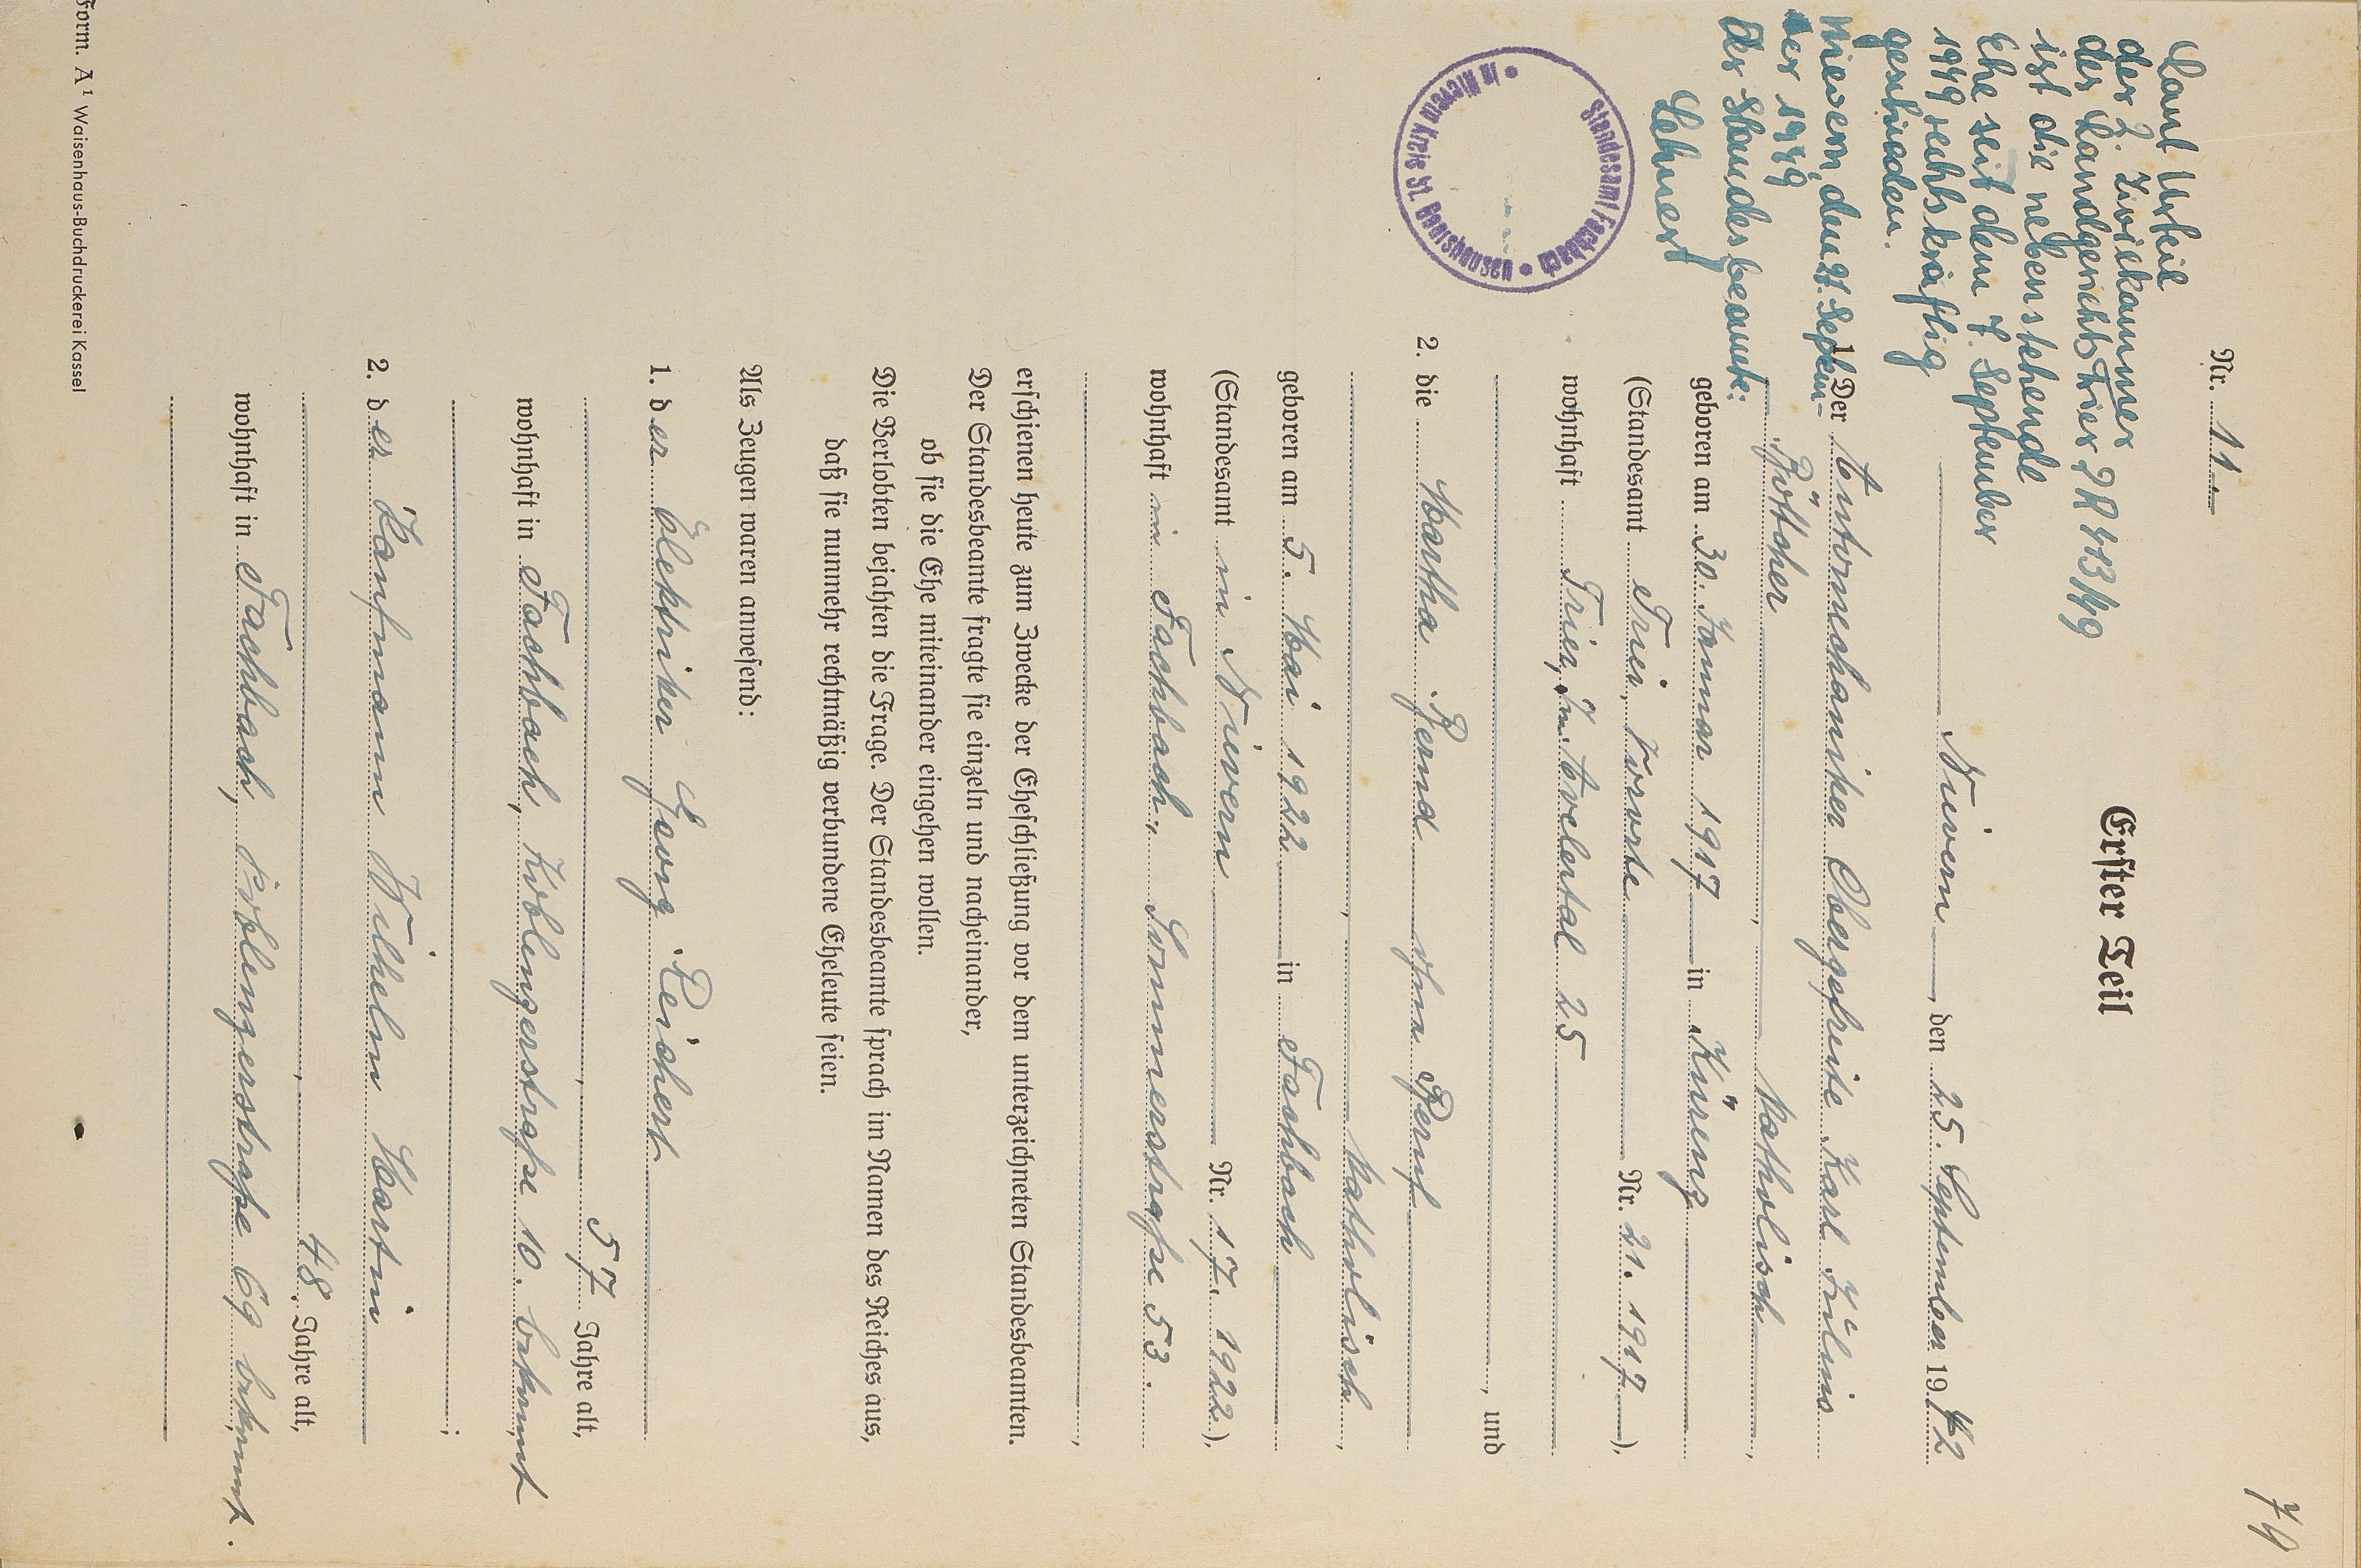 74
Nr. 11
Erster Teil
Nievern, den 25. September 1942
Laut Urteil
der 2. Zivilkammer
des Landgerichts Trier 2 R 413/49
ist die nebenstehende
Ehe seit dem 7. September
1949 rechtskräftig
geschieden.
Nievern, den 27. Septem-
ber 1949
Der Standesbeamte:
Lehnert
Standesamt Fachbach
in Nievern Kreis St. Goarshausen
1. Der Automechaniker Obergefreite Karl Julius
Böttcher, katholisch,
geboren am 30. Januar 1917 in Kürenz
(Standesamt Trier, Vororte Nr. 21. 1917),
wohnhaft Trier, Im Avelertal 25
, und
2. die Martha Bernd ohne Beruf
, katholisch,
geboren am 5. Mai 1922 in Fachbach
(Standesamt in Nievern Nr. 17. 1922),
wohnhaft in Fachbach, Sommerstraße 53.
,
erschienen heute zum Zwecke der Eheschließung vor dem unterzeichneten Standesbeamten.
Der Standesbeamte fragte sie einzeln und nacheinander,
ob sie die Ehe miteinander eingehen wollen.
Die Verlobten bejahten die Frage. Der Standesbeamte sprach im Namen des Reiches aus,
daß sie nunmehr rechtmäßig verbundene Eheleute seien.
Als Zeugen waren anwesend:
1. der Elektriker Georg Reichert
, 57 Jahre alt,
wohnhaft in Fachbach, Koblenzerstraße 10. bekannt
;
2. der Kaufmann Wilhelm Martin
, 48 Jahre alt,
wohnhaft in Fachbach, Koblenzerstraße 69 bekannt.
Form. A 1 Waisenhaus-Buchdruckerei Kassel